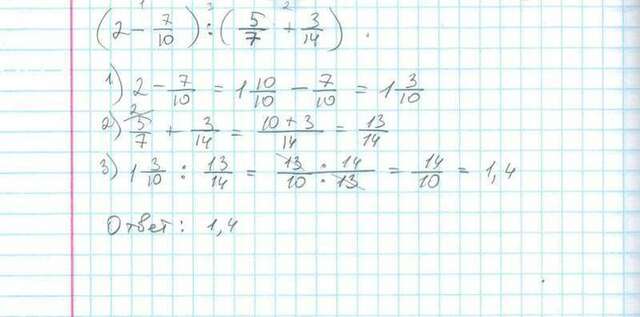 (2 - 7/10) : (5/7 + 3/14).
1) 2 - 7/10 = 1 10/10 - 7/10 = 1 3/10
2) 5/7 + 3/14 = 10 + 3/14 = 13/14
3) 1 3/10 : 13/14 = 13 · 14/10 · 13 = 14/10 = 1,4
Ответ: 1,4